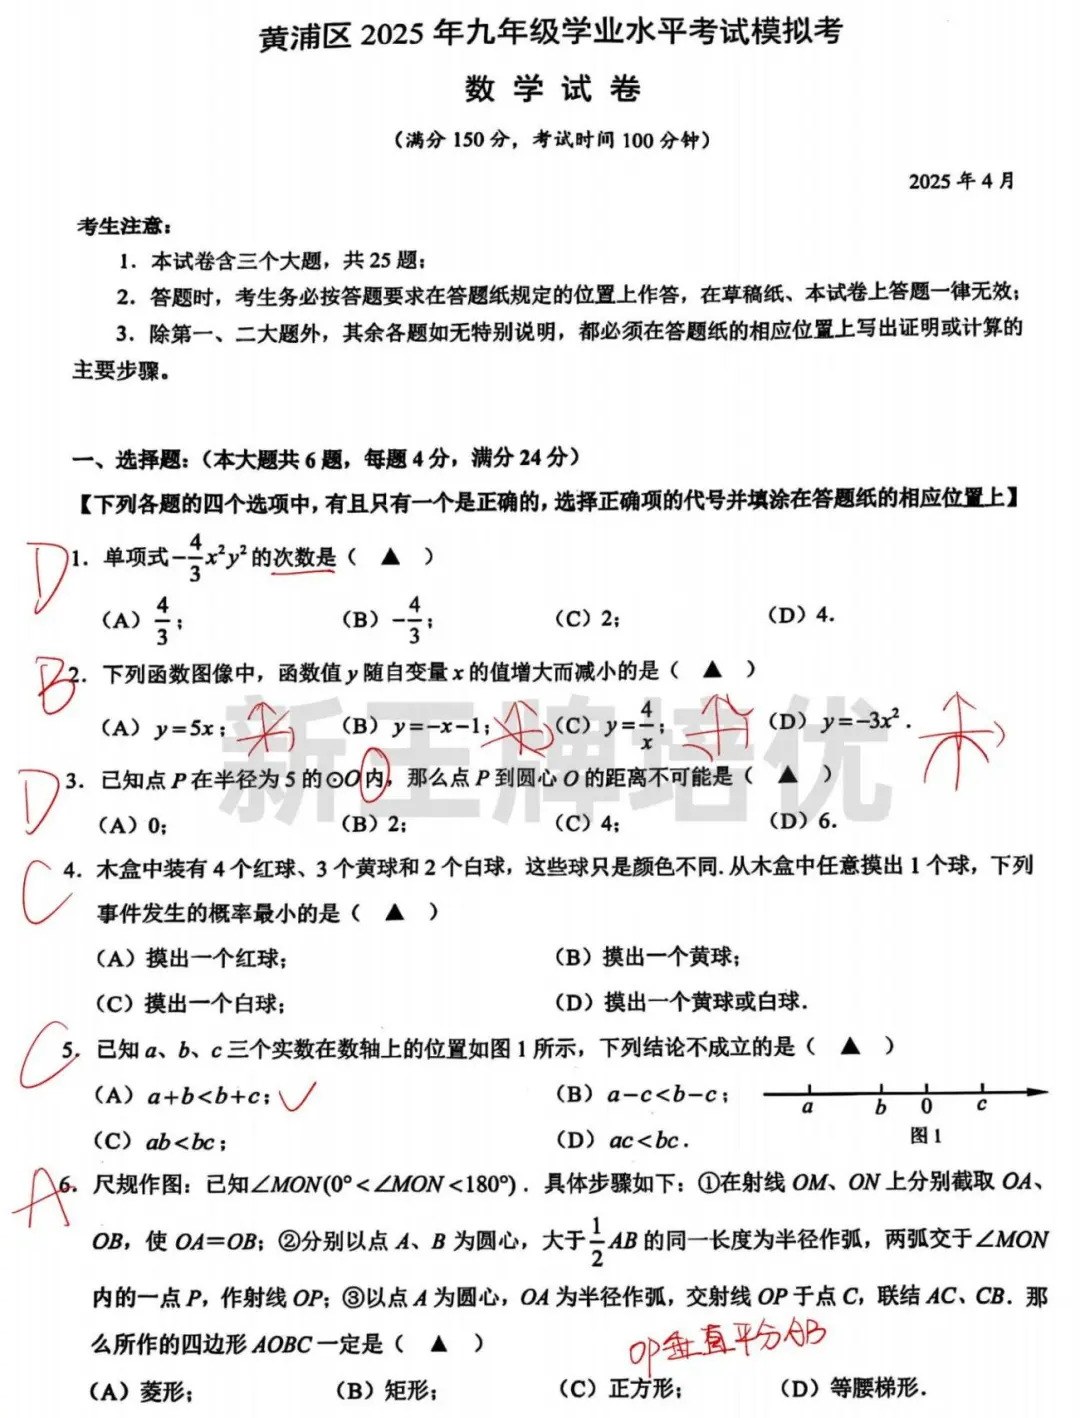 黄浦区 2025 年九年级学业水平考试模拟考
数 学 试 卷
（满分 150 分，考试时间 100 分钟）
2025 年 4 月
考生注意：
1．本试卷含三个大题，共 25 题；
2．答题时，考生务必按答题要求在答题纸规定的位置上作答，在草稿纸、本试卷上答题一律无效；
3．除第一、二大题外，其余各题如无特别说明，都必须在答题纸的相应位置上写出证明或计算的
主要步骤。
一、选择题：（本大题共 6 题，每题 4 分，满分 24 分）
【下列各题的四个选项中，有且只有一个是正确的，选择正确项的代号并填涂在答题纸的相应位置上】
D 1．单项式 -4/3 x²y² 的次数是（ ▲ ）
（A）4/3； （B）-4/3； （C）2； （D）4．
B 2．下列函数图像中，函数值 y 随自变量 x 的值增大而减小的是（ ▲ ）
（A）y=5x； （B）y=-x-1； （C）y=4/x； （D）y=-3x²．
新王牌培优
D 3．已知点 P 在半径为 5 的⊙O内，那么点 P 到圆心 O 的距离不可能是（ ▲ ）
（A）0； （B）2； （C）4； （D）6．
C 4．木盒中装有 4 个红球、3 个黄球和 2 个白球，这些球只是颜色不同．从木盒中任意摸出 1 个球，下列
事件发生的概率最小的是（ ▲ ）
（A）摸出一个红球； （B）摸出一个黄球；
（C）摸出一个白球； （D）摸出一个黄球或白球．
C 5．已知 a、b、c 三个实数在数轴上的位置如图 1 所示，下列结论不成立的是（ ▲ ）
（A）a+b<b+c；✓ （B）a-c<b-c；
a b 0 c
图 1
（C）ab<bc； （D）ac<bc．
A 6．尺规作图：已知∠MON(0°<∠MON<180°)．具体步骤如下：①在射线 OM、ON 上分别截取 OA、
OB，使 OA=OB；②分别以点 A、B 为圆心，大于 1/2 AB 的同一长度为半径作弧，两弧交于∠MON
内的一点 P，作射线 OP；③以点 A 为圆心，OA 为半径作弧，交射线 OP 于点 C，联结 AC、CB．那
么所作的四边形 AOBC 一定是（ ▲ ）
OP垂直平分AB
（A）菱形； （B）矩形； （C）正方形； （D）等腰梯形．